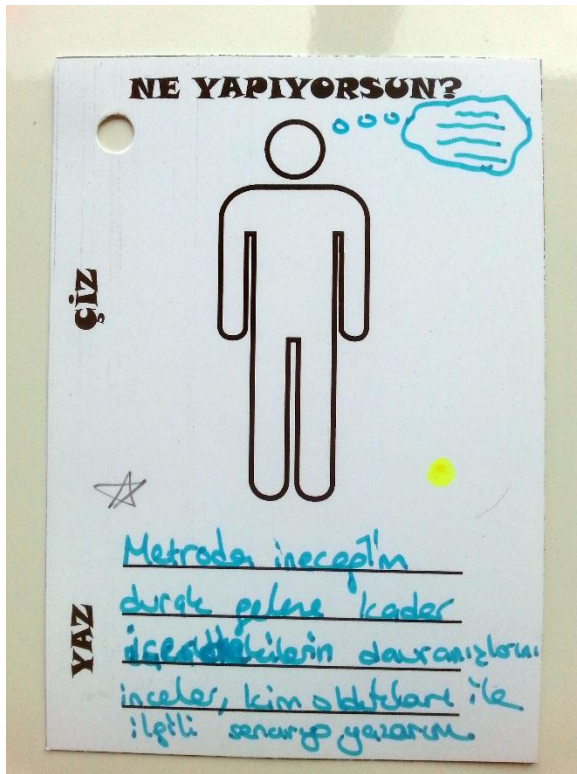 NE YAPIYORSUN?
ÇİZ
YAZ
Metrodan ineceğim
durak gelene kadar
içerdekilerin davranışlarını
inceler, kim oldukları ile
ilgili senaryo yazarım.